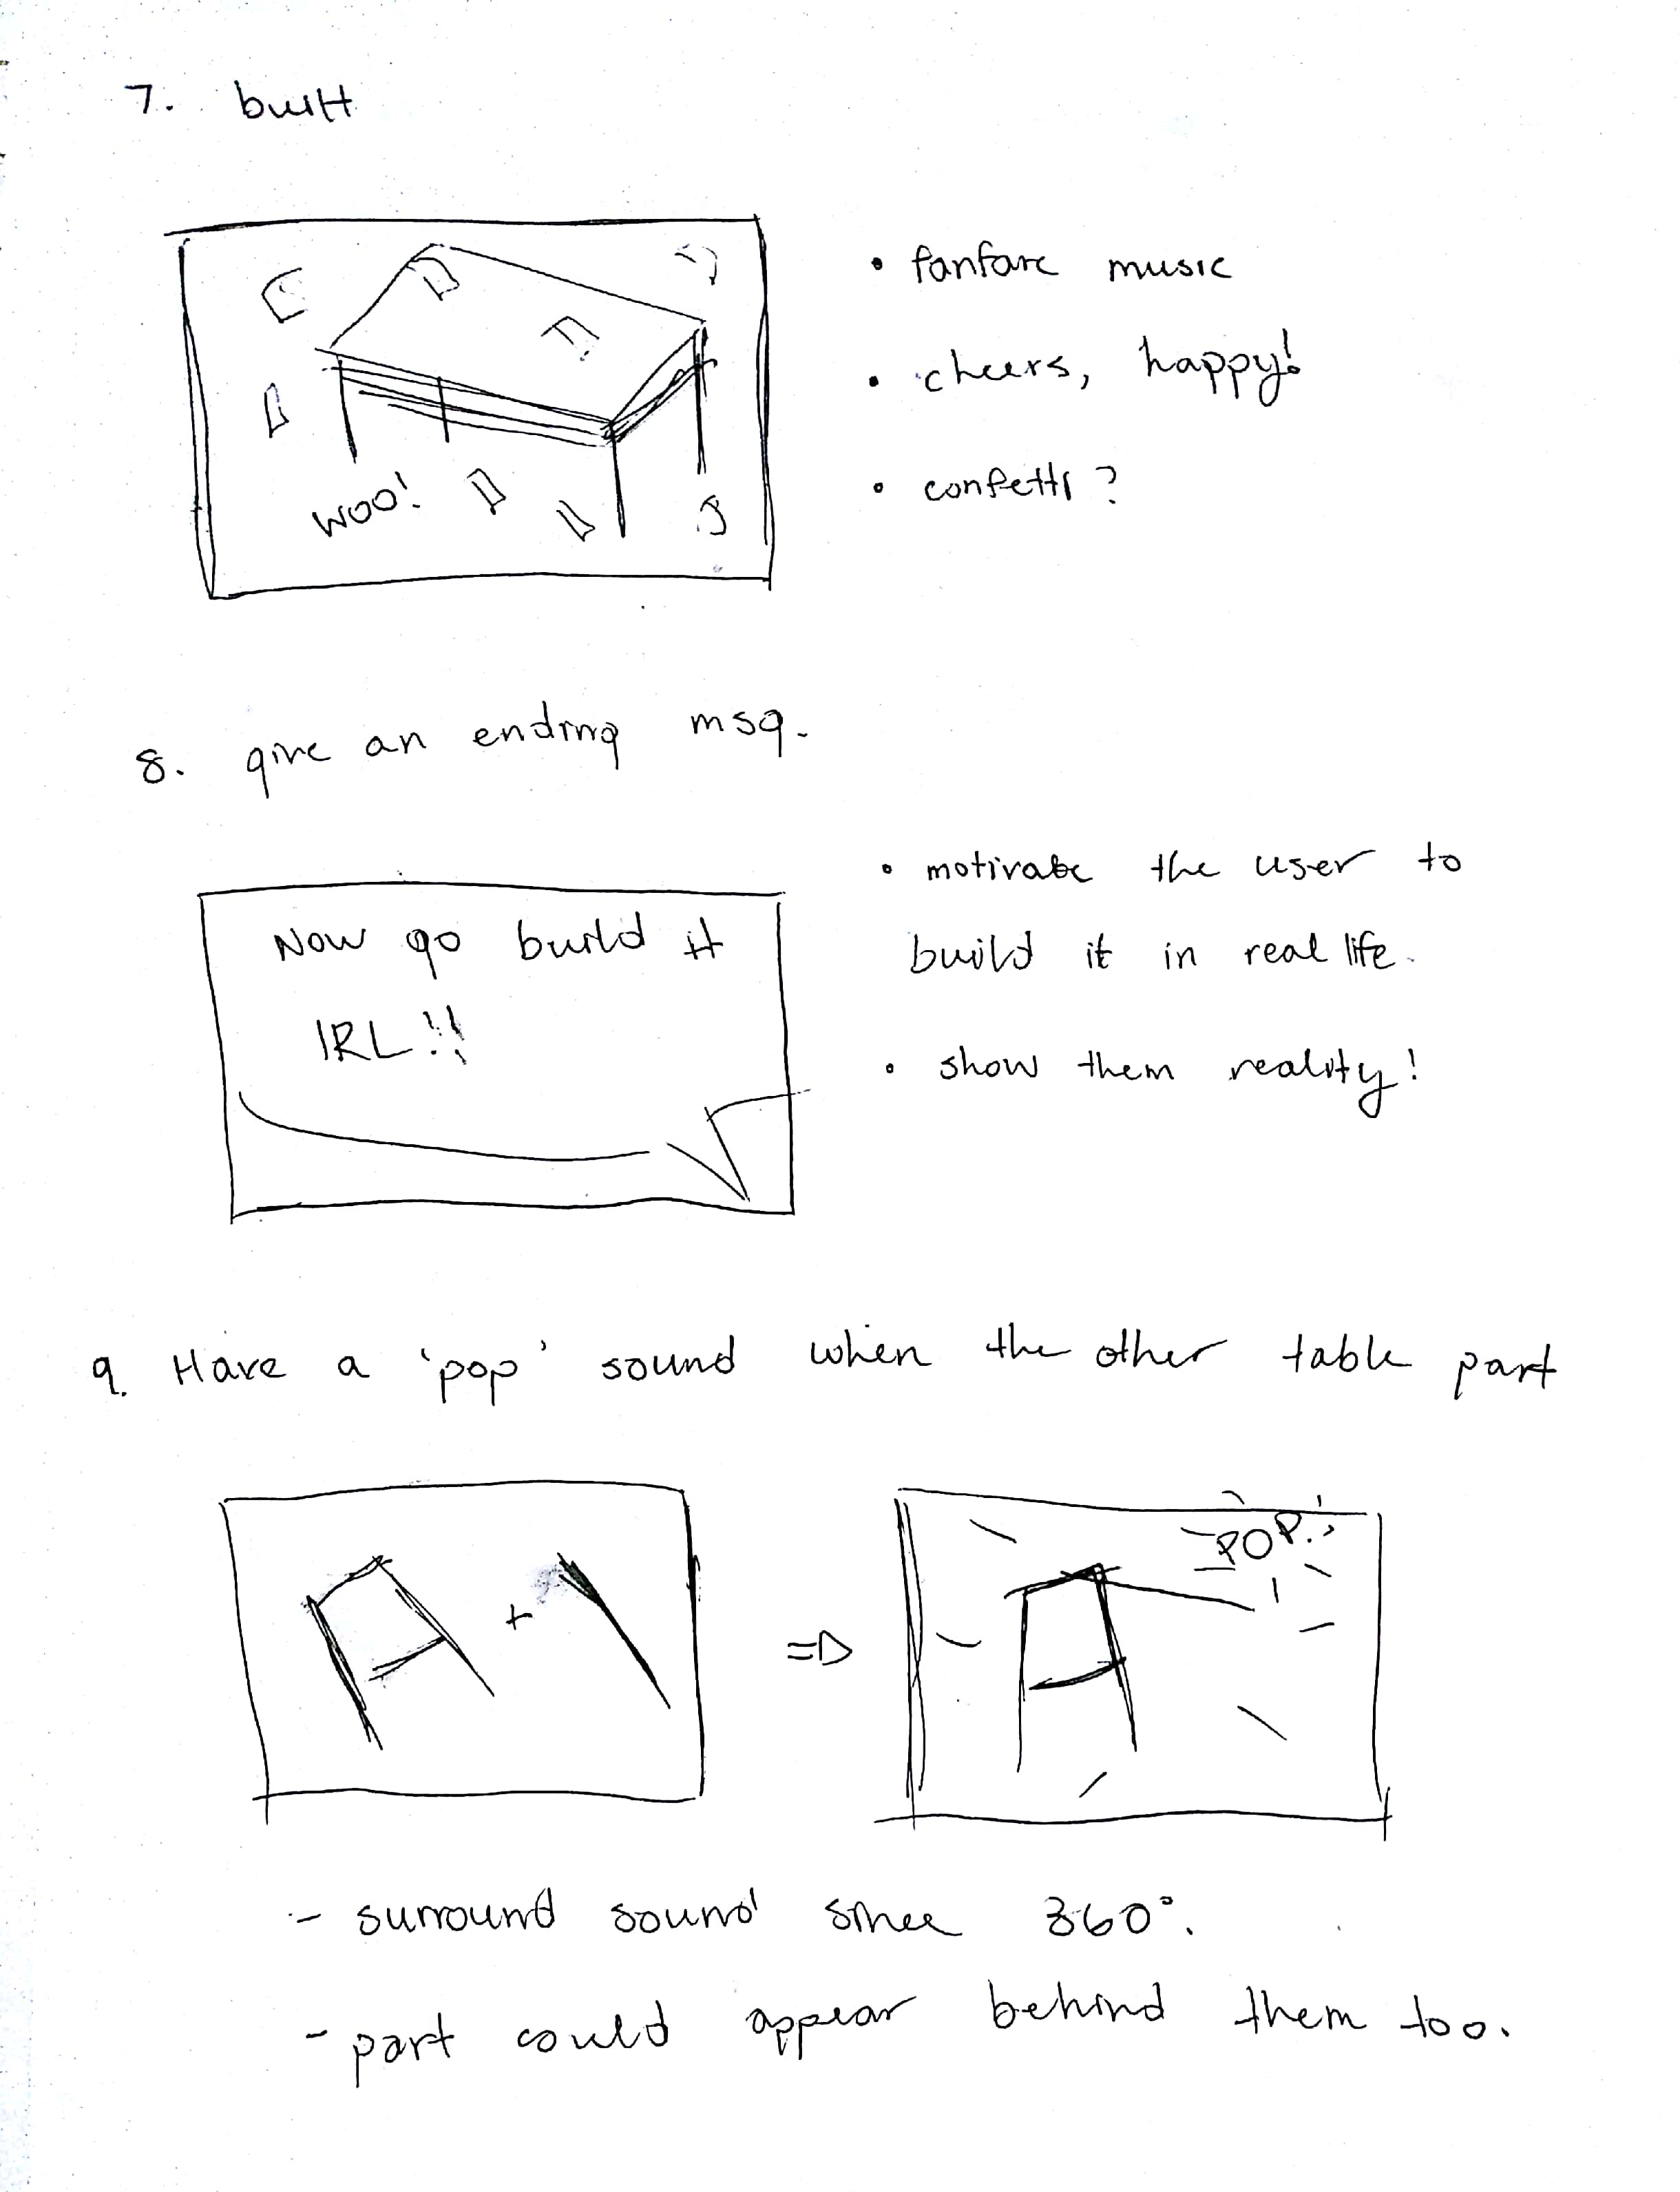 7. built
WOO!
• fanfare music
• cheers, happy!
• confetti?
8. give an ending msg.
Now go build it
IRL!!
• motivate the user to
build it in real life.
• show them reality!
9. Have a 'pop' sound when the other table part
+
⇒
POP!
- surround sound since 360°.
- part could appear behind them too.